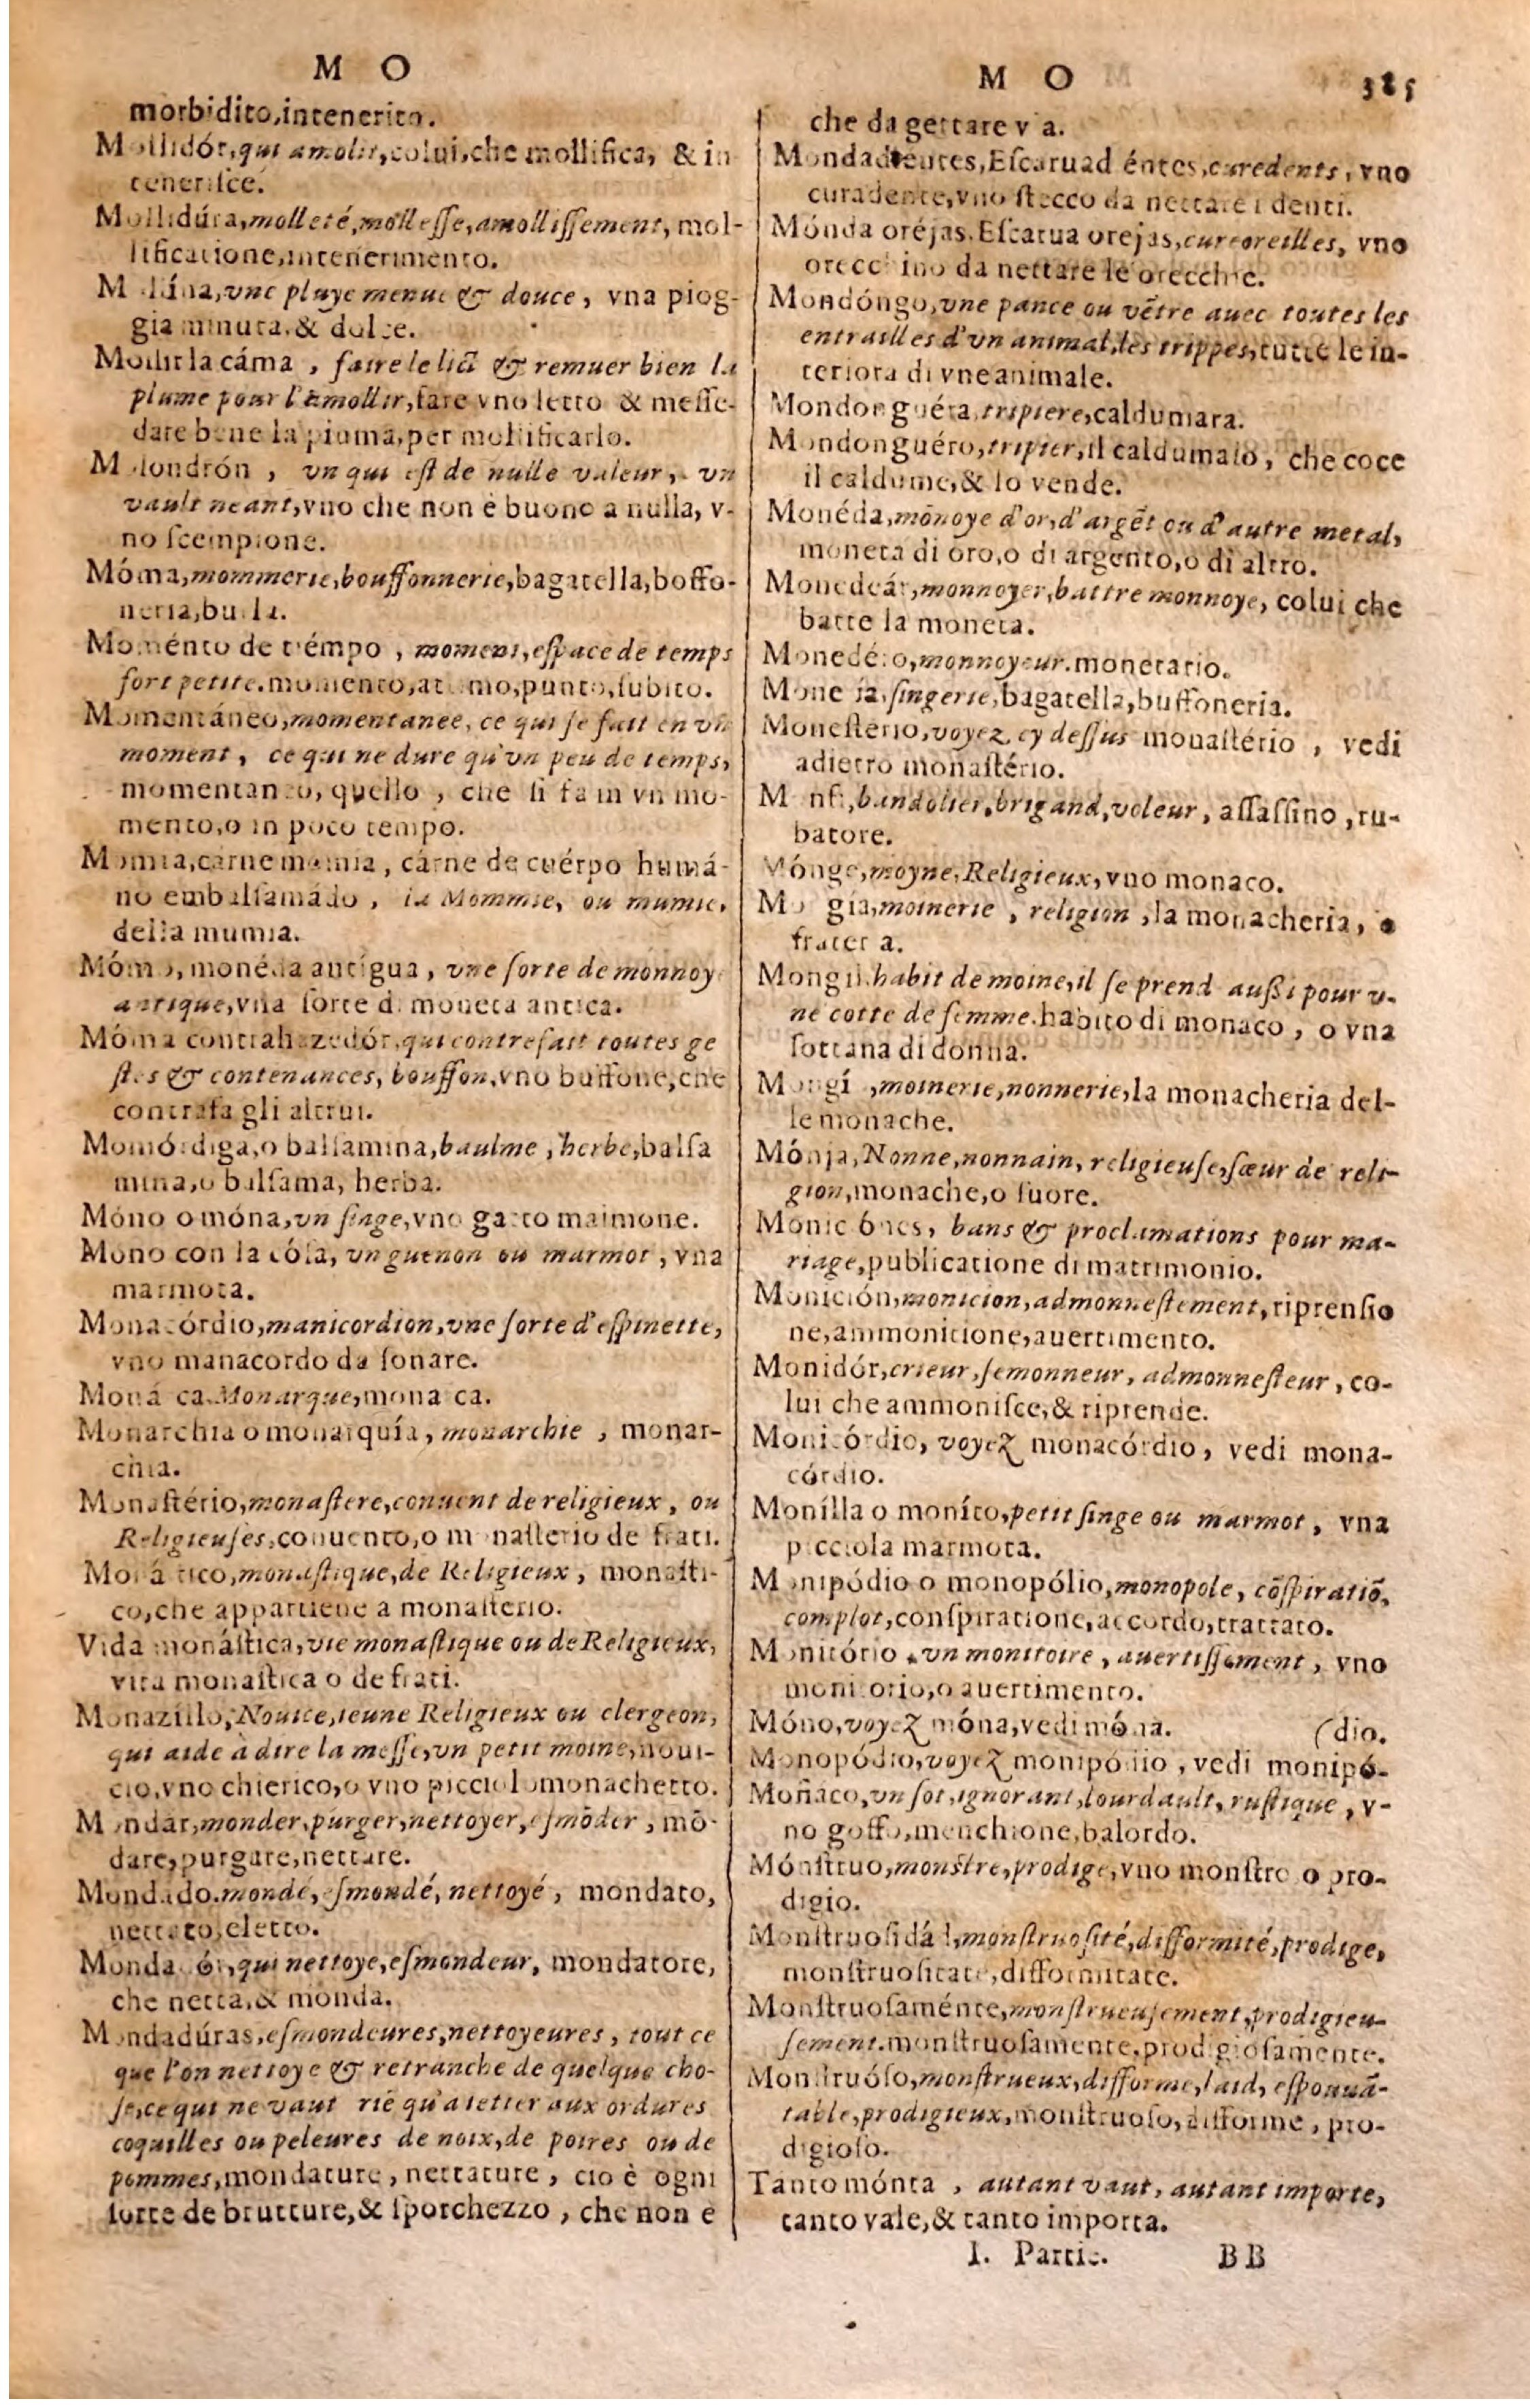 M O
morbidito,intenerito.
Mollidór,qui amolit,colui,che mollifica, & in
tenerisce.
Mollidúra,molleté,mollesse,amollissement, mol-
lificatione,intenerimento.
vne pluye menue & douce, vna piog-
gia minuta,& dolce.
Mollir la cáma , faire le lict & remuer bien la
plume pour l'amollir,fare vno letto & messe-
dare bene la piuma,per mollificarlo.
Molondrón , vn qui est de nulle valeur, vn
vault neant,vno che non è buono a nulla, v-
no scempione.
Móma,mommerie,bouffonnerie,bagatella,boffo-
neria,burla.
Moménto de tiémpo , moment,espace de temps
fort petite.momento,attimo,punto,subito.
Momentáneo,momentanee, ce qui se fait en vn
moment, ce qui ne dure qu'vn peu de temps,
momentaneo, quello , che si fa in vn mo-
mento,o in poco tempo.
Momia,cárne momia , cárne de cuérpo humá-
no embalsamádo , la Mommie, ou mumie,
della mumia.
Mómo, monéda antígua, vne sorte de monnoy
antique,vna sorte di moneta antica.
Móma contrahazedór,qui contrefait toutes ge
stes & contenances, bouffon,vno buffone,che
contrafa gli altrui.
Momórdiga,o balsamina,baulme , herbe,balsa
mina,o balsama, herba.
Móno o móna,vn singe,vno gatto maimone.
Mono con la cóla, vn guenon ou marmot , vna
marmota.
Monacórdio,manicordion,vne sorte d'espinette,
vno manacordo da sonare.
Moná ca.Monarque,mona ca.
Monarchia o monarquía, monarchie , monar-
chia.
Monastério,monastere,conuent de religieux, ou
Religieuses,conuento,o monasterio de frati.
Moná tico,monastique,de Religieux, monasti-
co,che appartiene a monasterio.
Vida monástica,vie monastique ou de Religieux,
vita monastica o de frati.
Monazillo,Nouice,ieune Religieux ou clergeon,
qui aide à dire la messe,vn petit moine,noui-
cio,vno chierico,o vno picciolo monachetto.
Mondar,monder,purger,nettoyer,esmõder, mõ-
dare,purgare,nettare.
Mondado.mondé,esmondé, nettoyé, mondato,
nettato,eletto.
Monda ór,qui nettoye,esmondeur, mondatore,
che netta,& monda.
Mondadúras,esmondeures,nettoyeures, tout ce
que l'on nettoye & retranche de quelque cho-
se,ce qui ne vaut riẽ qu'a ietter aux ordures
coquilles ou peleures de noix,de poires ou de
pommes,mondature, nettature, cio è ogni
sorte de brutture,& sporchezzo , che non e
M O 385
che da gettare via.
Mondadientes,Escaruad éntes,curedents, vno
curadente,vno stecco da nettare i denti.
Mónda oréjas.Escarua orejas,cureoreilles, vno
orecchino da nettare le orecchie.
Mondóngo,vne pance ou vẽtre auec toutes les
entrailles d'vn animal,les trippes,tutte le in-
teriora di vneanimale.
Mondonguéra,tripiere,caldumara.
Mondonguéro,tripier,il caldumaio, che coce
il caldume,& lo vende.
Monéda,mõnoye d'or,d'argẽt ou d'autre metal,
moneta di oro,o di argento,o di altro.
Monedeár,monnoyer,battre monnoye, colui che
batte la moneta.
Monedéro,monnoyeur.monetario.
Mone ía,singerie,bagatella,buffoneria.
Monesterio,voyez cy dessus monastério , vedi
adietro monastério.
bandolier,brigand,voleur, assassino ,ru-
batore.
Mónge,moyne,Religieux,vno monaco.
Mo gia,moinerie , religion ,la monacheria, o
frateria.
Mongil.habit de moine,il se prend aussi pour v-
ne cotte de femme.habito di monaco , o vna
sottana di donna.
Mongí ,moinerie,nonnerie,la monacheria del-
le monache.
Mónja,Nonne,nonnain, religieuse,sœur de reli-
gion,monache,o suore.
Monic ónes, bans & proclamations pour ma-
riage,publicatione di matrimonio.
Monición,monicion,admonnestement,riprensio
ne,ammonitione,auertimento.
Monidór,crieur,semonneur, admonnesteur, co-
lui che ammonisce,& riprende.
Monicórdio, voyez monacórdio, vedi mona-
córdio.
Monílla o moníto,petit singe ou marmot, vna
picciola marmota.
Monipódio o monopólio,monopole, cõspiratiõ,
complot,conspiratione,accordo,trattato.
Monitório , vn monitoire, auertissement, vno
monitorio,o auertimento.
Móno,voyez móna,vedi móna. (dio.
Monopódio,voyez monipódio , vedi monipó-
Moñaco,vn sot,ignorant,lourdault, rustique, v-
no goffo,menchione,balordo.
Mónstruo,monstre,prodige,vno monstro o pro-
digio.
Monstruosidád,monstruosité,difformité,prodige,
monstruositate,difformitate.
Monstruosaménte,monstrueusement,prodigieu-
sement.monstruosamente,prodigiosamente.
Monstruóso,monstrueux,difforme,laid, espouuã-
table,prodigieux,monstruoso,difforme , pro-
digioso.
Tanto mónta , autant vaut, autant importe,
tanto vale,& tanto importa.
I. Partie. BB